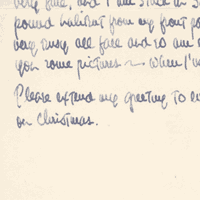 very fine, and I am stuck in S
round walnut from my front po
very busy all face and so am
you some pictures ~ When I'm
Please extend my greeting to
on Christmas.